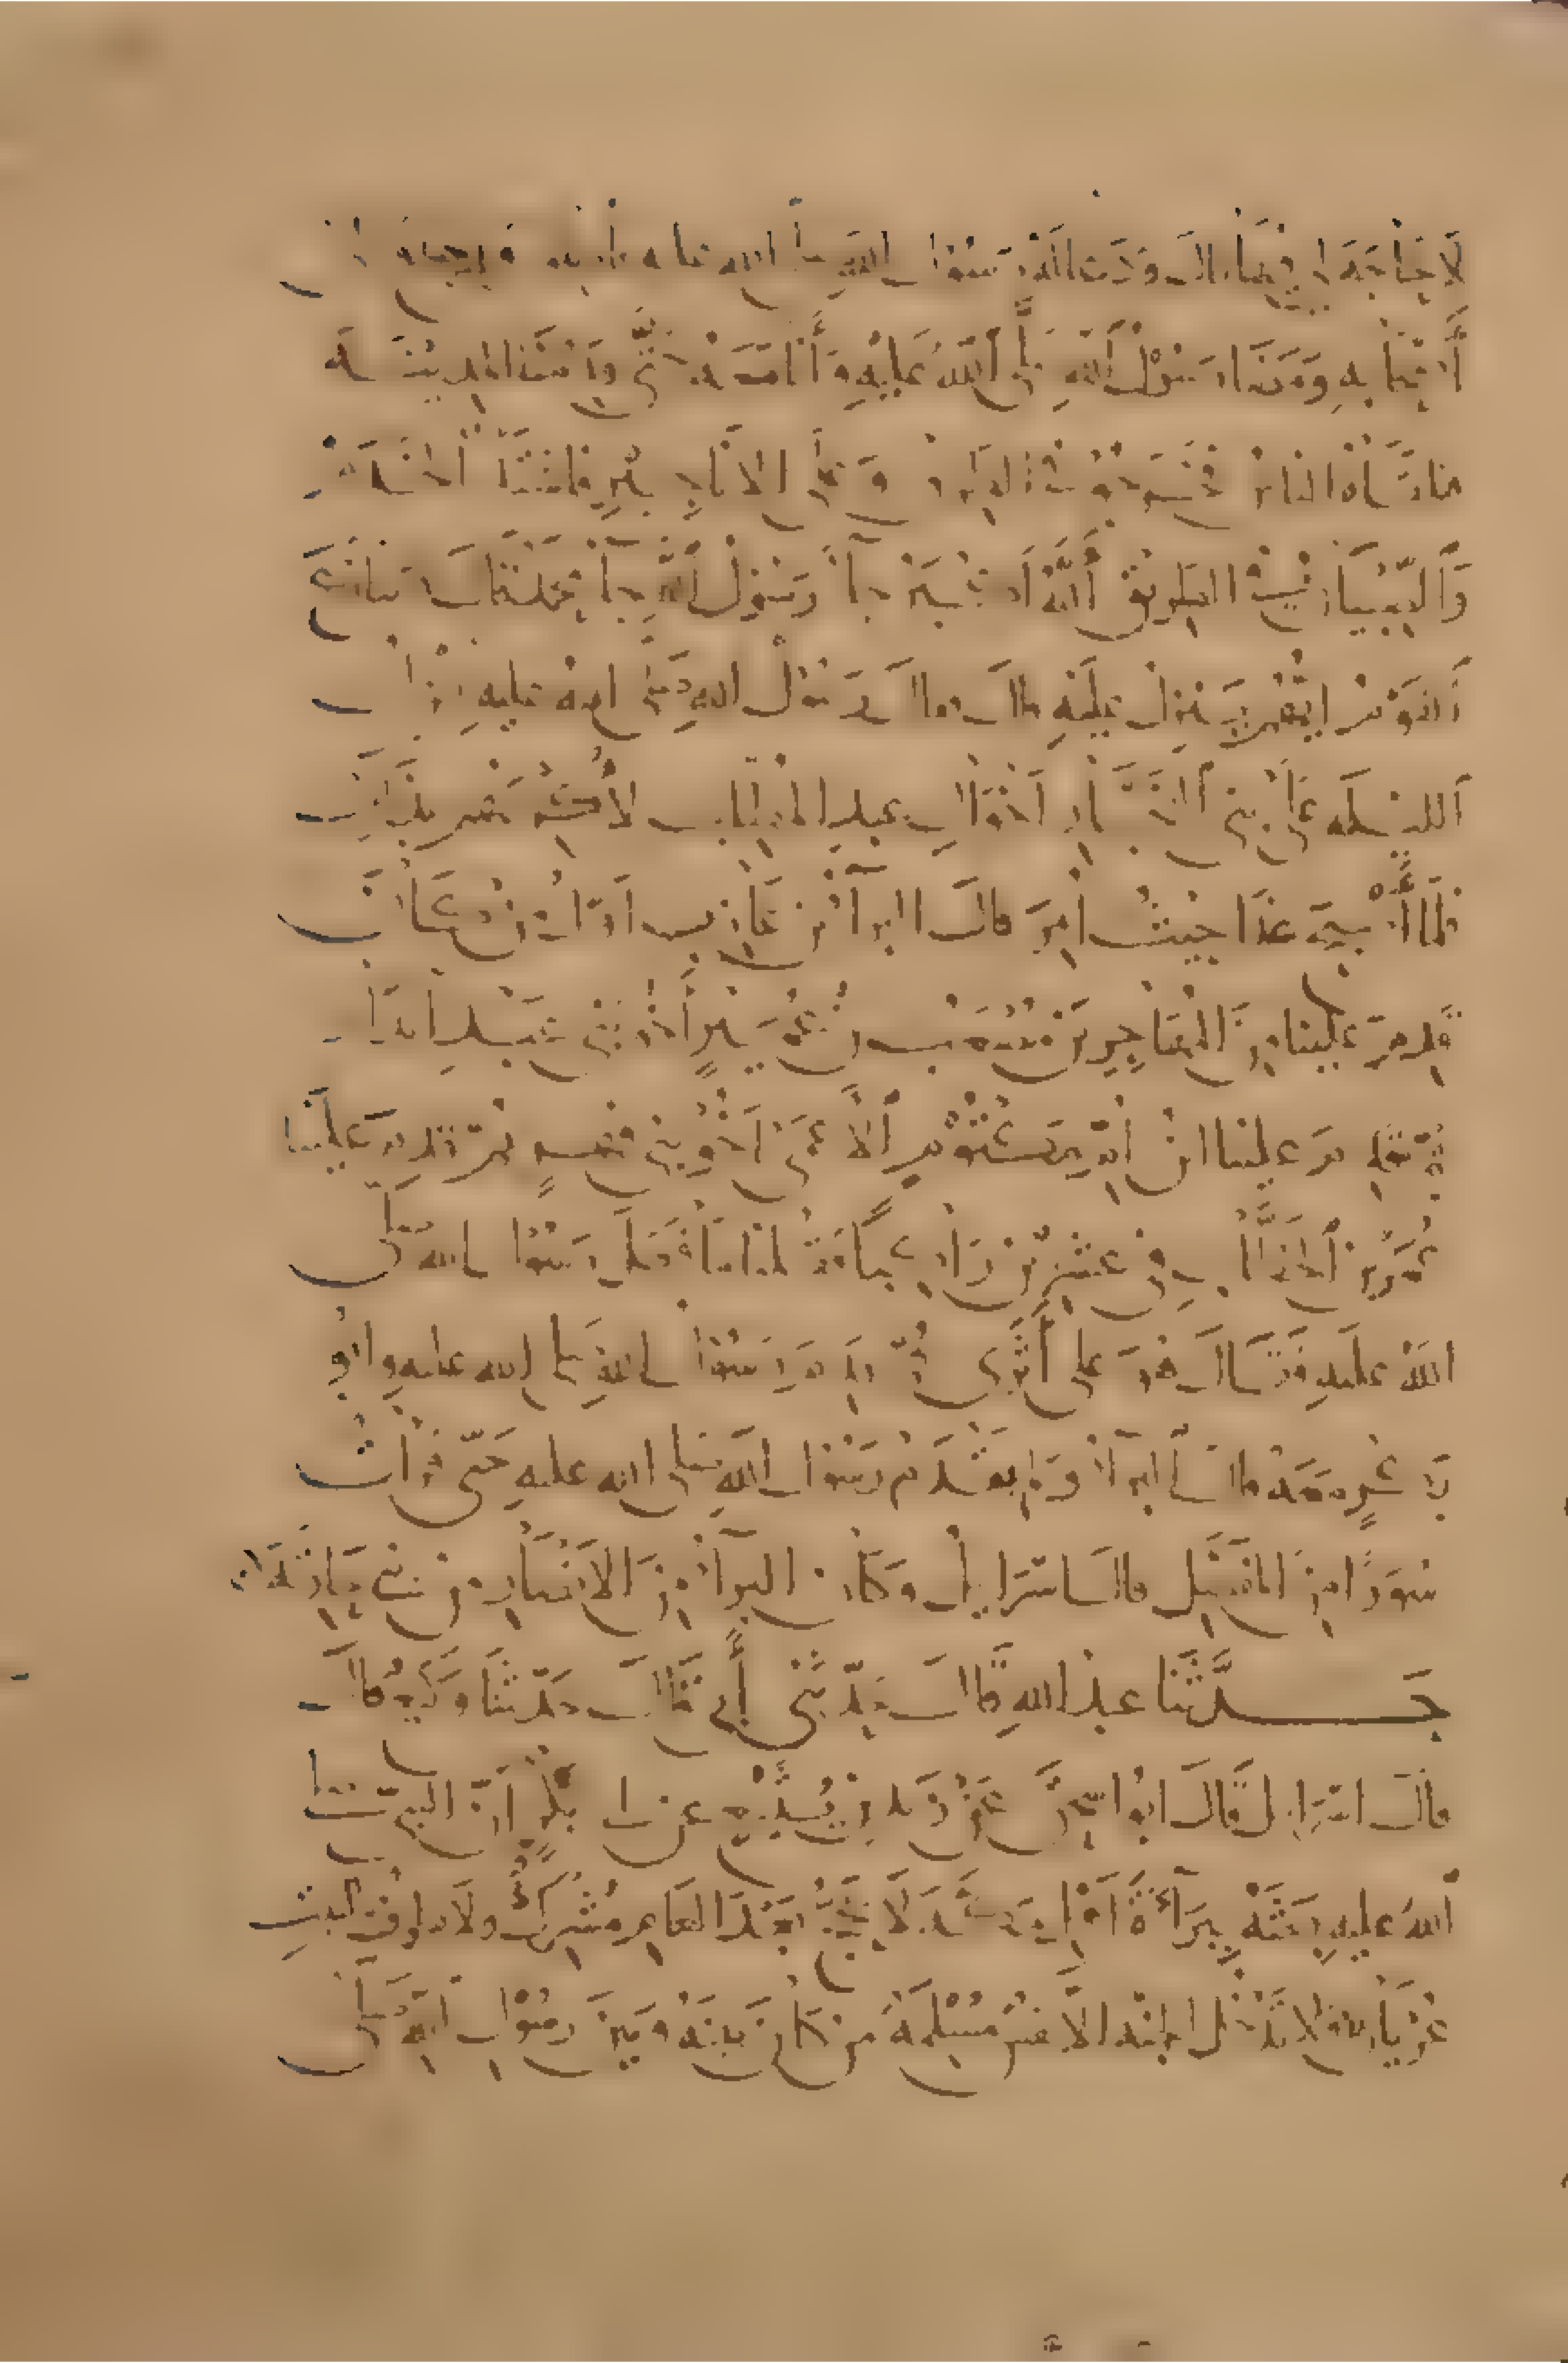 لَا حَاجَةَ لِي فِيهَا قال وَدَعَا لَهُ رَسُولُ اللهِ صلى الله عليه فَرجع إلى
أَصْحَابِهِ وَمَضَى رَسُولُ اللهِ صَلَّى اللهُ عَلَيْهِ وَأَنَا مَعَهُ حَتَّى قَدِمْنَا المدِينَةَ
فتلقاهُ الناسُ فَخَرَجُوا فِي الطريق وَعَلَى الأَجَاجِيرِ فاشتدَّ الخدَمُ
وَالصِّبْيَانُ فِي الطريق اللهُ أكبر جاءَ رَسُولُ اللهِ جاءَ محمد قال وتنازع
القَوْمُ أَيُّهُمْ يَنْزِلُ عليْهِ قال فقال رَسُولُ اللهِ صَلَّى اللهُ عليهِ أنزل
الليْلَةَ عَلَى بَنِي النَّجَّارِ أَخْوَالِ عبدِ المُطَّلِبِ لأُكْرِمَهُم بذلك
فلمَّا أَصْبَحَ غَدَا حيْثُ أُمِرَ قال البراءُ بن عَازِبٍ أَوَّلُ مَنْ كَانَ
قَدِمَ عَلَيْنَا مِنَ المُهَاجِرِينَ مُصْعَبُ بنُ عُمَيْرٍ أَخُو بَنِي عَبْدِ الدَّارِ
ثُمَّ قَدِمَ علينا ابنُ أُمِّ مَكْتُومٍ الأَعْمَى أَخُو بَنِي فِهْرٍ ثُمَّ قَدِمَ عَلَيْنا
عُمَرُ بنُ الخَطَّابِ فِي عشرِينَ رَاكِبًا فَقُلْنَا مَا فَعَلَ رَسُولُ اللهِ صَلى
اللهُ عليهِ فَقَالَ هُوَ على أَثَرِي ثُمَّ قَدِمَ رَسُولُ اللهِ صلى الله عليهِ وَأَبُو
بَكْرٍ مَعَهُ قال البراءُ وَلم يَقْدَم رَسُولُ اللهِ صلى الله عليهِ حَتَّى قرأتُ
سُوَرًا مِنَ المُفَصَّلِ قال اسْرَايِلُ وَكَانَ البراءُ مِنَ الأَنْصَارِ مِن بَنِي حَارِثَةَ
حَدَّثَنَا عبدُ اللهِ قَالَ حَدَّثَنِي أَبِي قَالَ حَدَّثَنَا وَكِيعٌ قال
قال اسْرَايِل قَالَ أبُو إسحقَ عَنْ زَيدِ بنِ يُثَيْعٍ عن أبي بكْرٍ أَنَّ النبيَّ صلى
اللهُ عليهِ بَعَثَهُ بِبَرَاءَةَ لأَهْلِ مَكَّةَ لَا يَحُجُّ بَعْدَ العَامِ مُشْرِكٌ ولَا يطوفُ بالبيتِ
عُرْيَانٌ وَلا تدْخُلُ الجنة الَّا نفسٌ مُسْلِمَةٌ من كَانَ بَيْنَهُ وَبَيْنَ رَسُولِ اللهِ صَلى